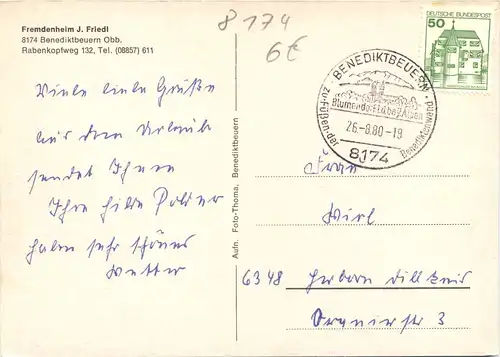 Fremdenheim J. Friedl
8174 Benediktbeuern Obb.
Rabenkopfweg 132, Tel. (08857) 611
8174
6€
DEUTSCHE BUNDESPOST
50
BENEDIKTBEUERN
Blumendorf i.d.bay.Alpen
26.-8.80-19
zu-Füßen-der Benediktenwand
8174
Viele liebe Grüße
aus dem Urlaub
sendet Ihnen
Ihre Hilde
haben sehr schönes
Wetter
Aufn. Foto-Thoma, Benediktbeuern
Frau
6348 Herborn Dillkreis
Oranierstr 3